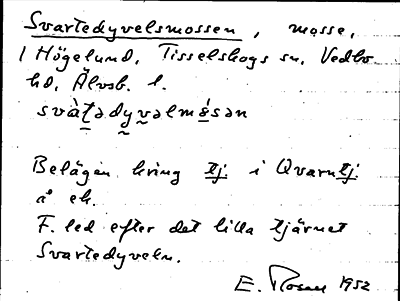 Svartedyvelsmossen, mosse,
1 Högelund, Tisselskogs sn, Vedbo
hd, Älvsb. l.
svàt̠ədy̰vəlmó̱sən
Belägen kring tj. i Qvarntj.
å ek.
F. led efter det lilla tjärnet
Svartedyveln.
E. Rosen 1952